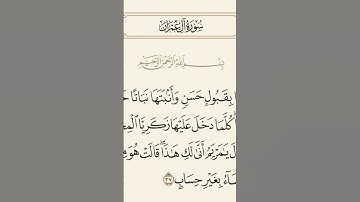 سُورَةُ آلِ عِمْرَانَ
بِسْمِ اللَّهِ الرَّحْمَٰنِ الرَّحِيمِ
بِقَبُولٍ حَسَنٍ وَأَنۢبَتَهَا نَبَاتًا
كُلَّمَا دَخَلَ عَلَيْهَا زَكَرِيَّا
يَٰمَرْيَمُ أَنَّىٰ لَكِ هَٰذَا ۖ قَالَتْ هُوَ
بِغَيْرِ حِسَابٍ ٣٧